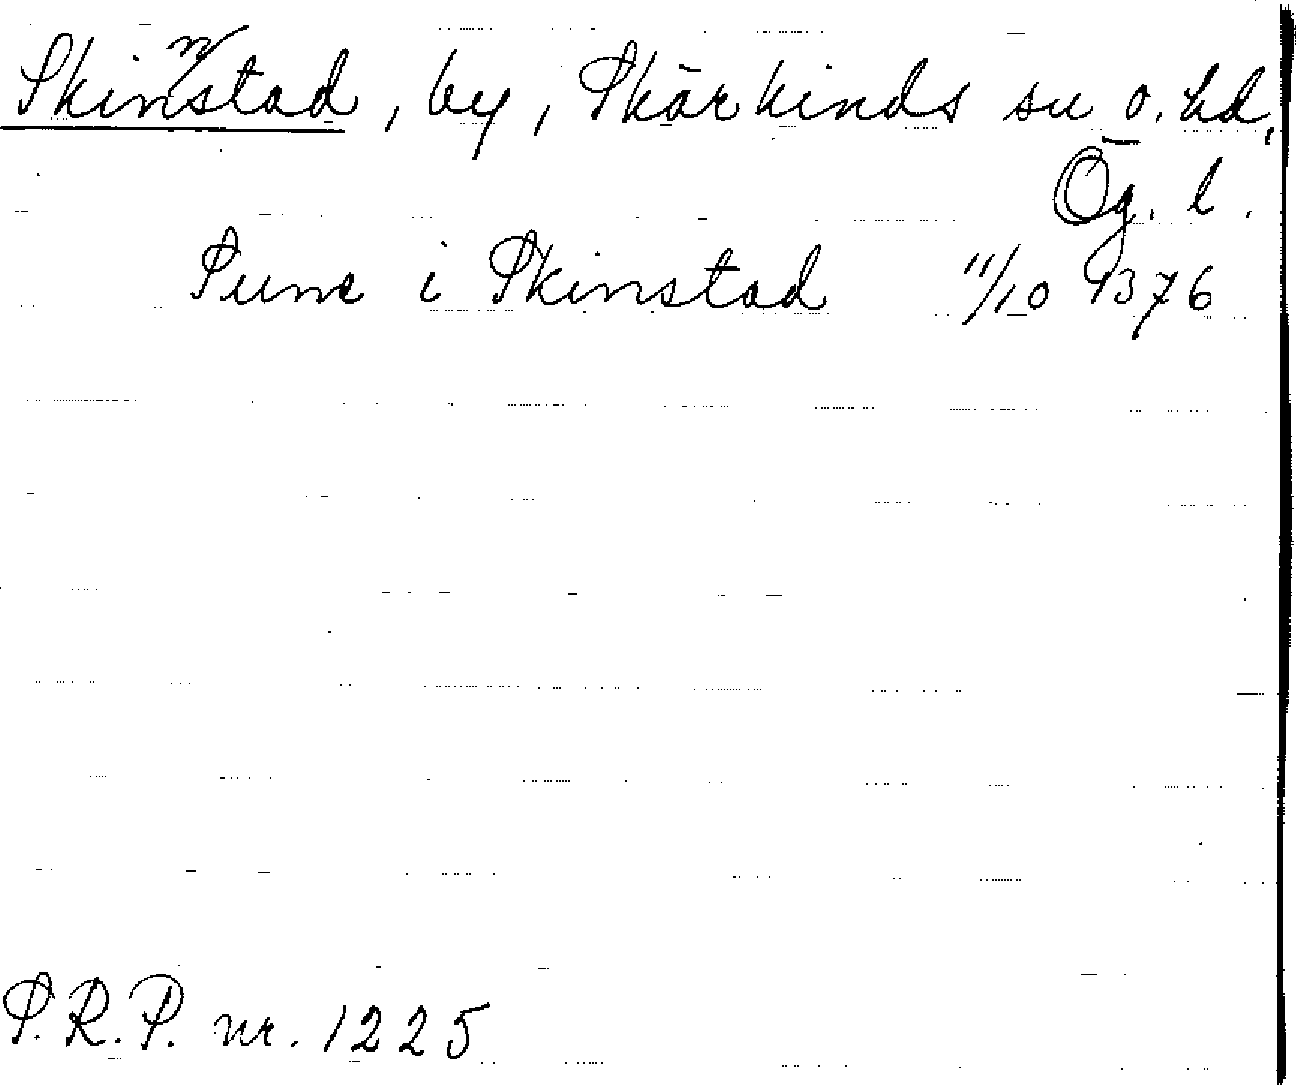 Skinnstad, by, Skärkinds sn o. hd,
Ög. l.
Sune i Skinstad 11/10 1376
S.R.P. nr. 1225